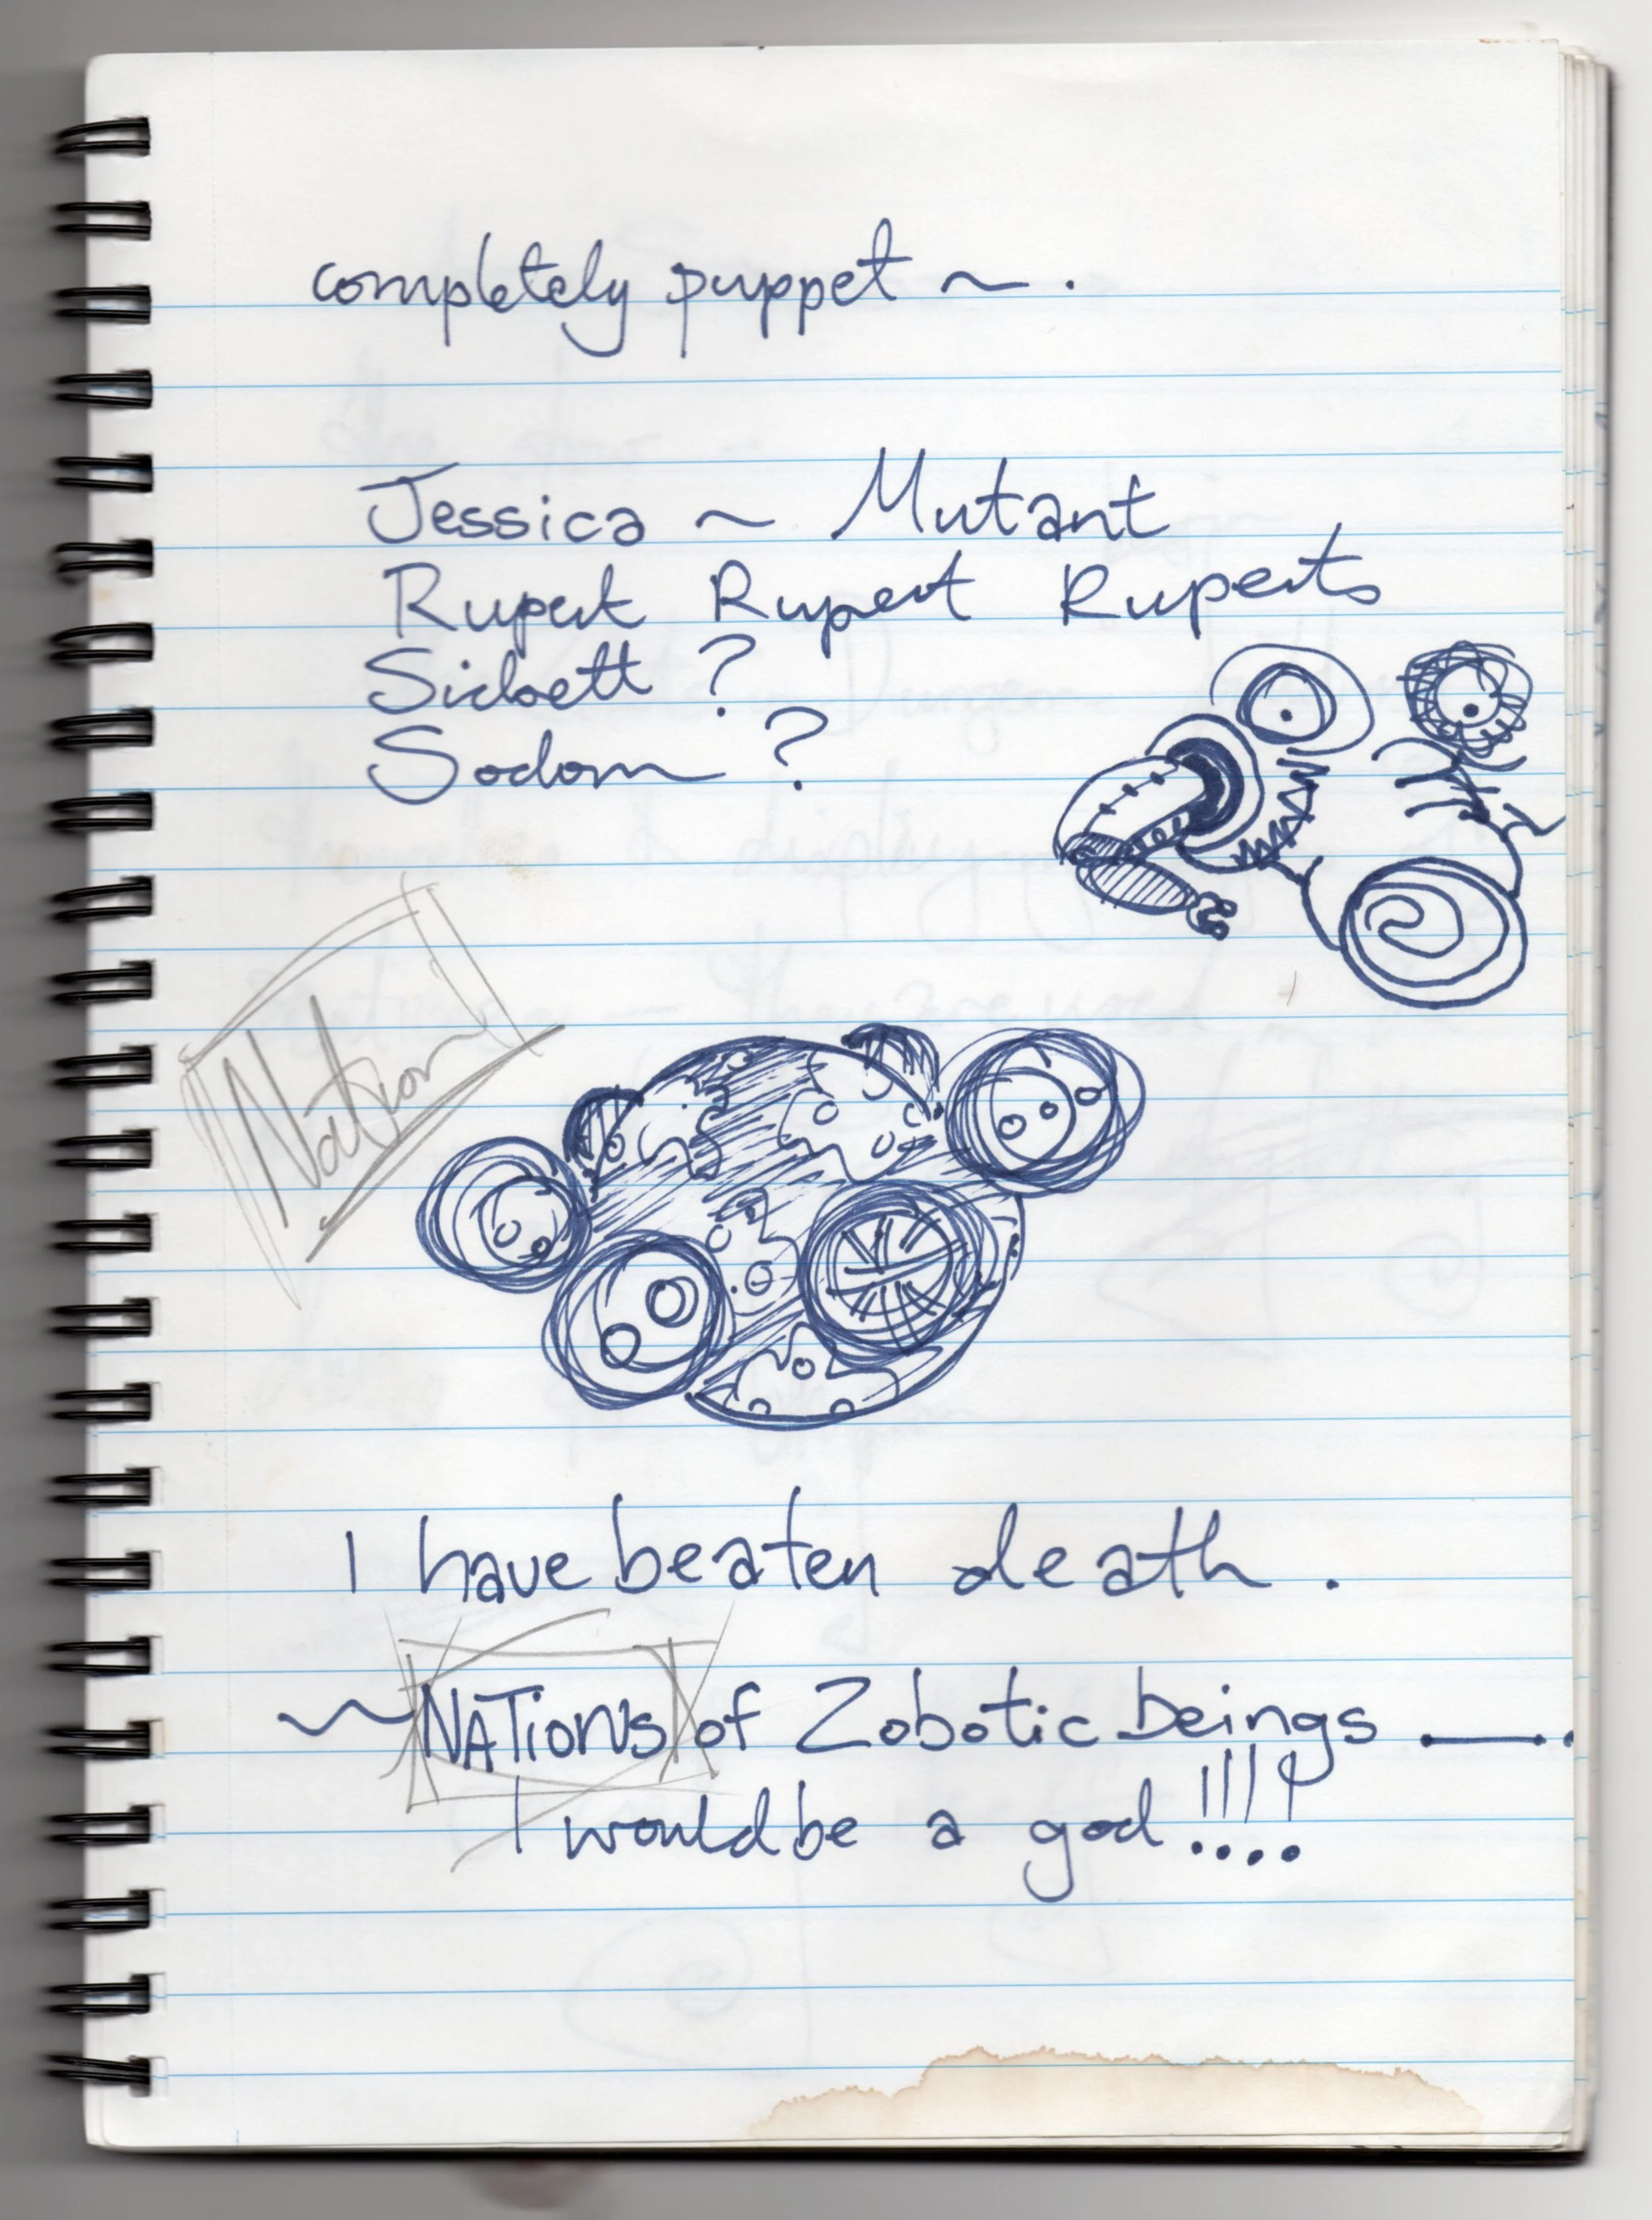 completely puppet ~ .
Jessica ~ Mutant
Rupert Rupert Ruperts
Sickett ?
Sodom ?
Nation
I have beaten death .
~ NATioNs of Zobotic beings —.
I would be a god !!!!